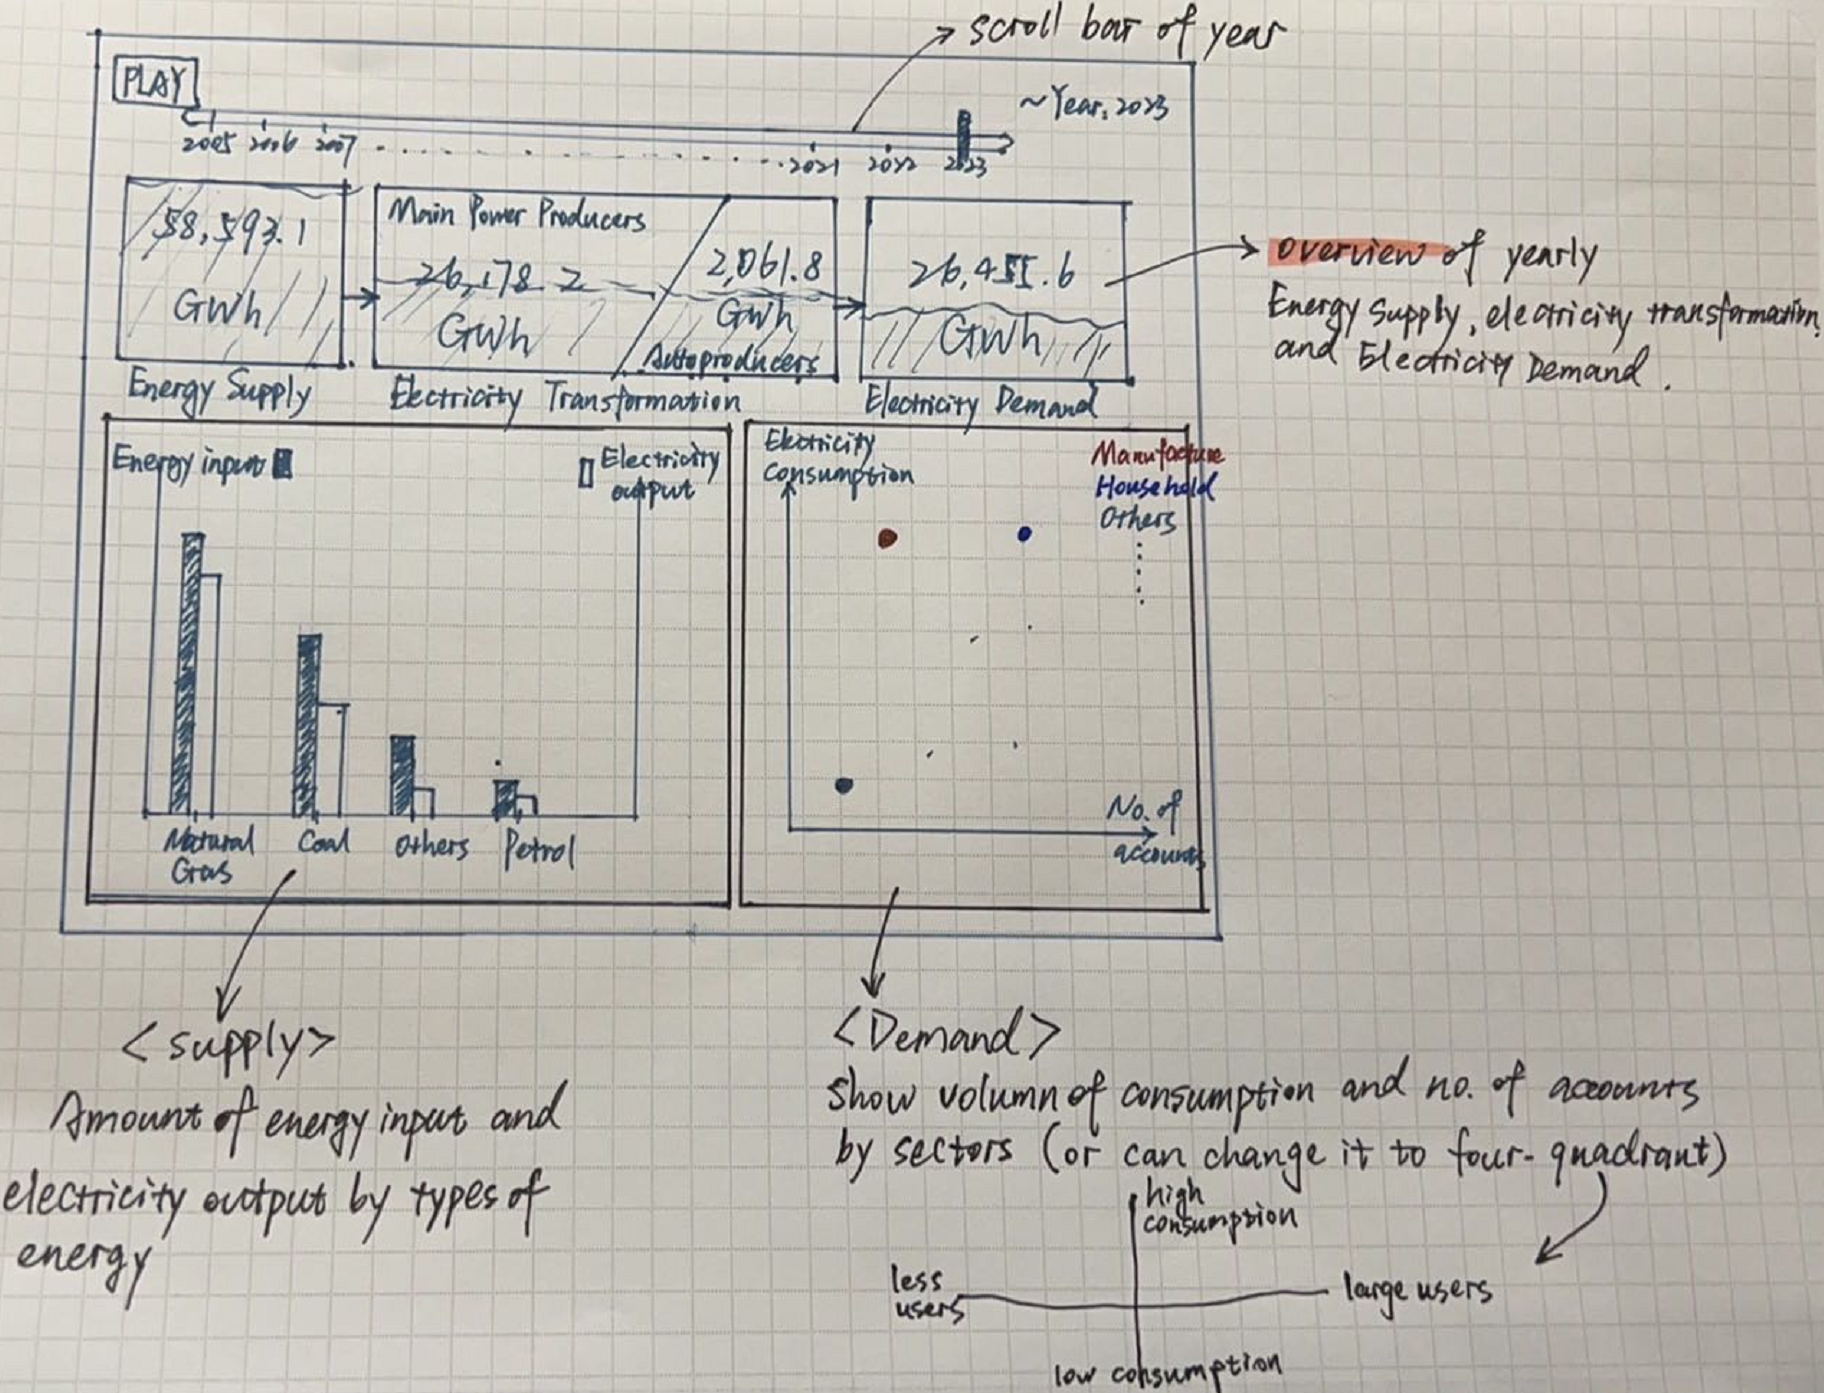 scroll bar of year
PLAY
~Year: 2023
2005 2006 2007 ................ 2021 2022 2023
58,593.1
GWh
Energy Supply
Main Power Producers
26,178.2
GWh
2,061.8
GWh
Autoproducers
Electricity Transformation
26,455.6
GWh
Electricity Demand
overview of yearly
Energy Supply, electricity transformation,
and Electricity Demand.
Energy input
Electricity
output
Natural
Gas
Coal
Others
Petrol
Electricity
Consumption
Manufacture
Household
Others
No. of
accounts
<supply>
Amount of energy input and
electricity output by types of
energy
<Demand>
Show volumn of consumption and no. of accounts
by sectors (or can change it to four-quadrant)
high
consumption
less
users
large users
low consumption